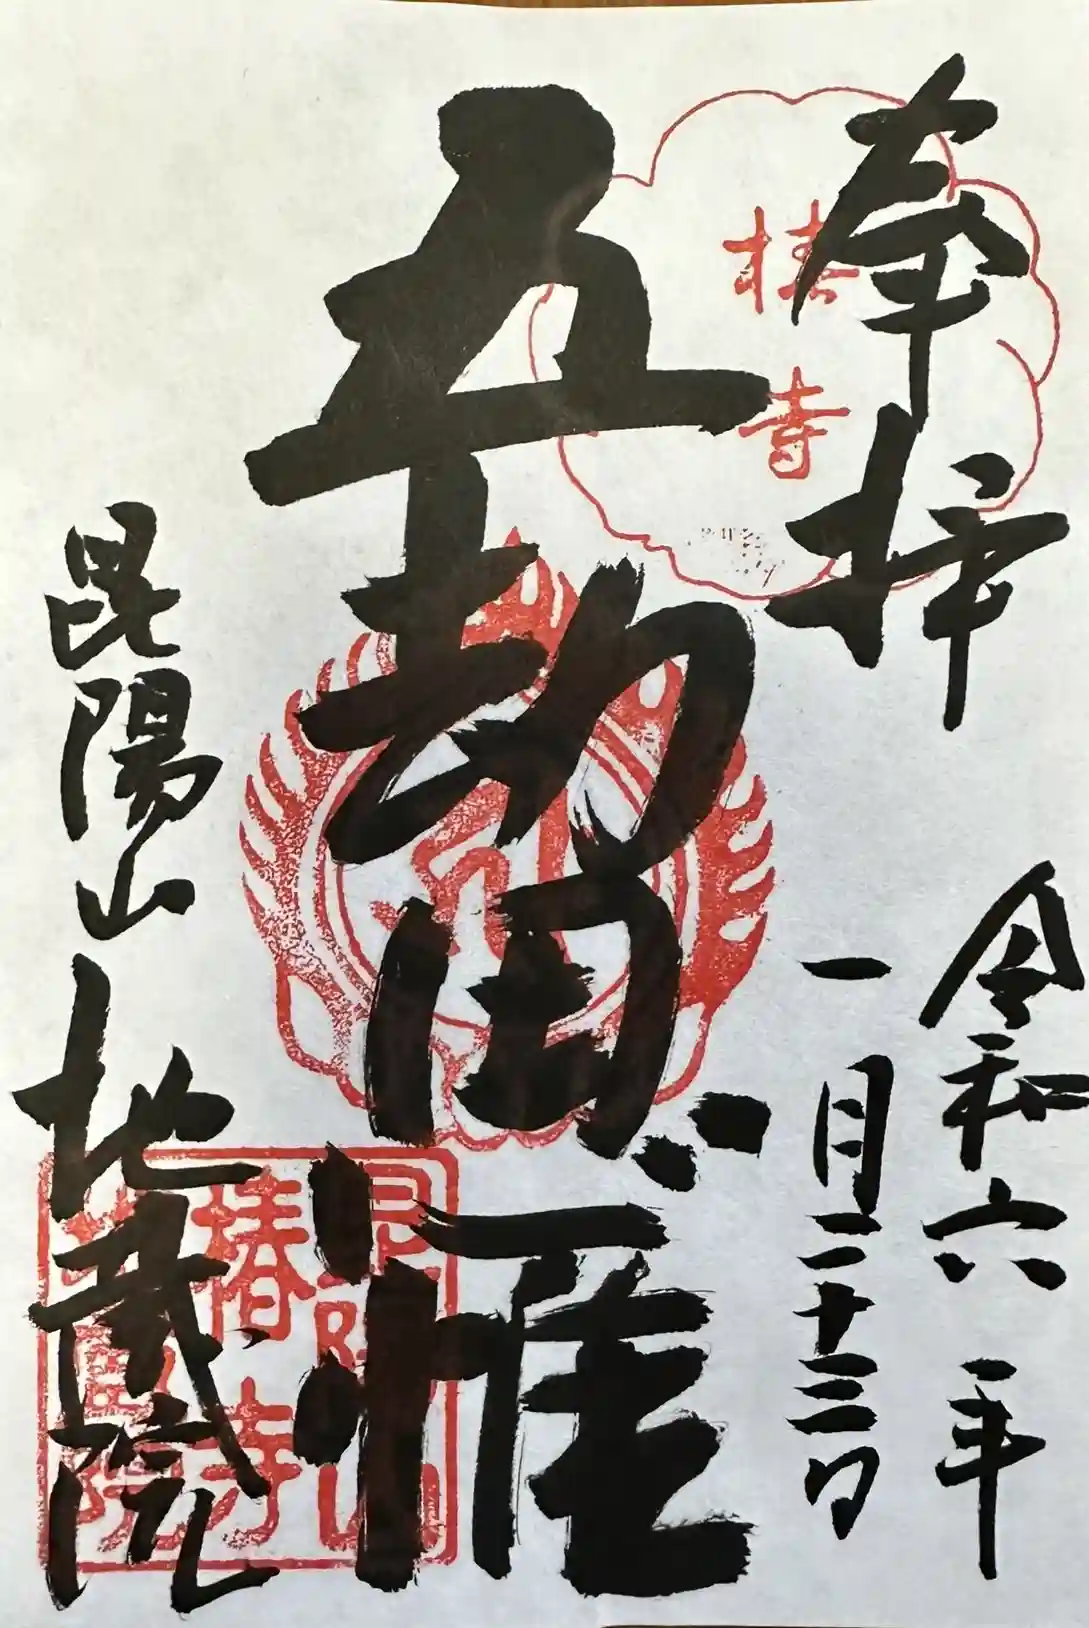 奉拝
令和六年
一月二十三日
椿寺
五劫思惟
昆陽山
地蔵院
昆陽山
椿寺
地蔵院